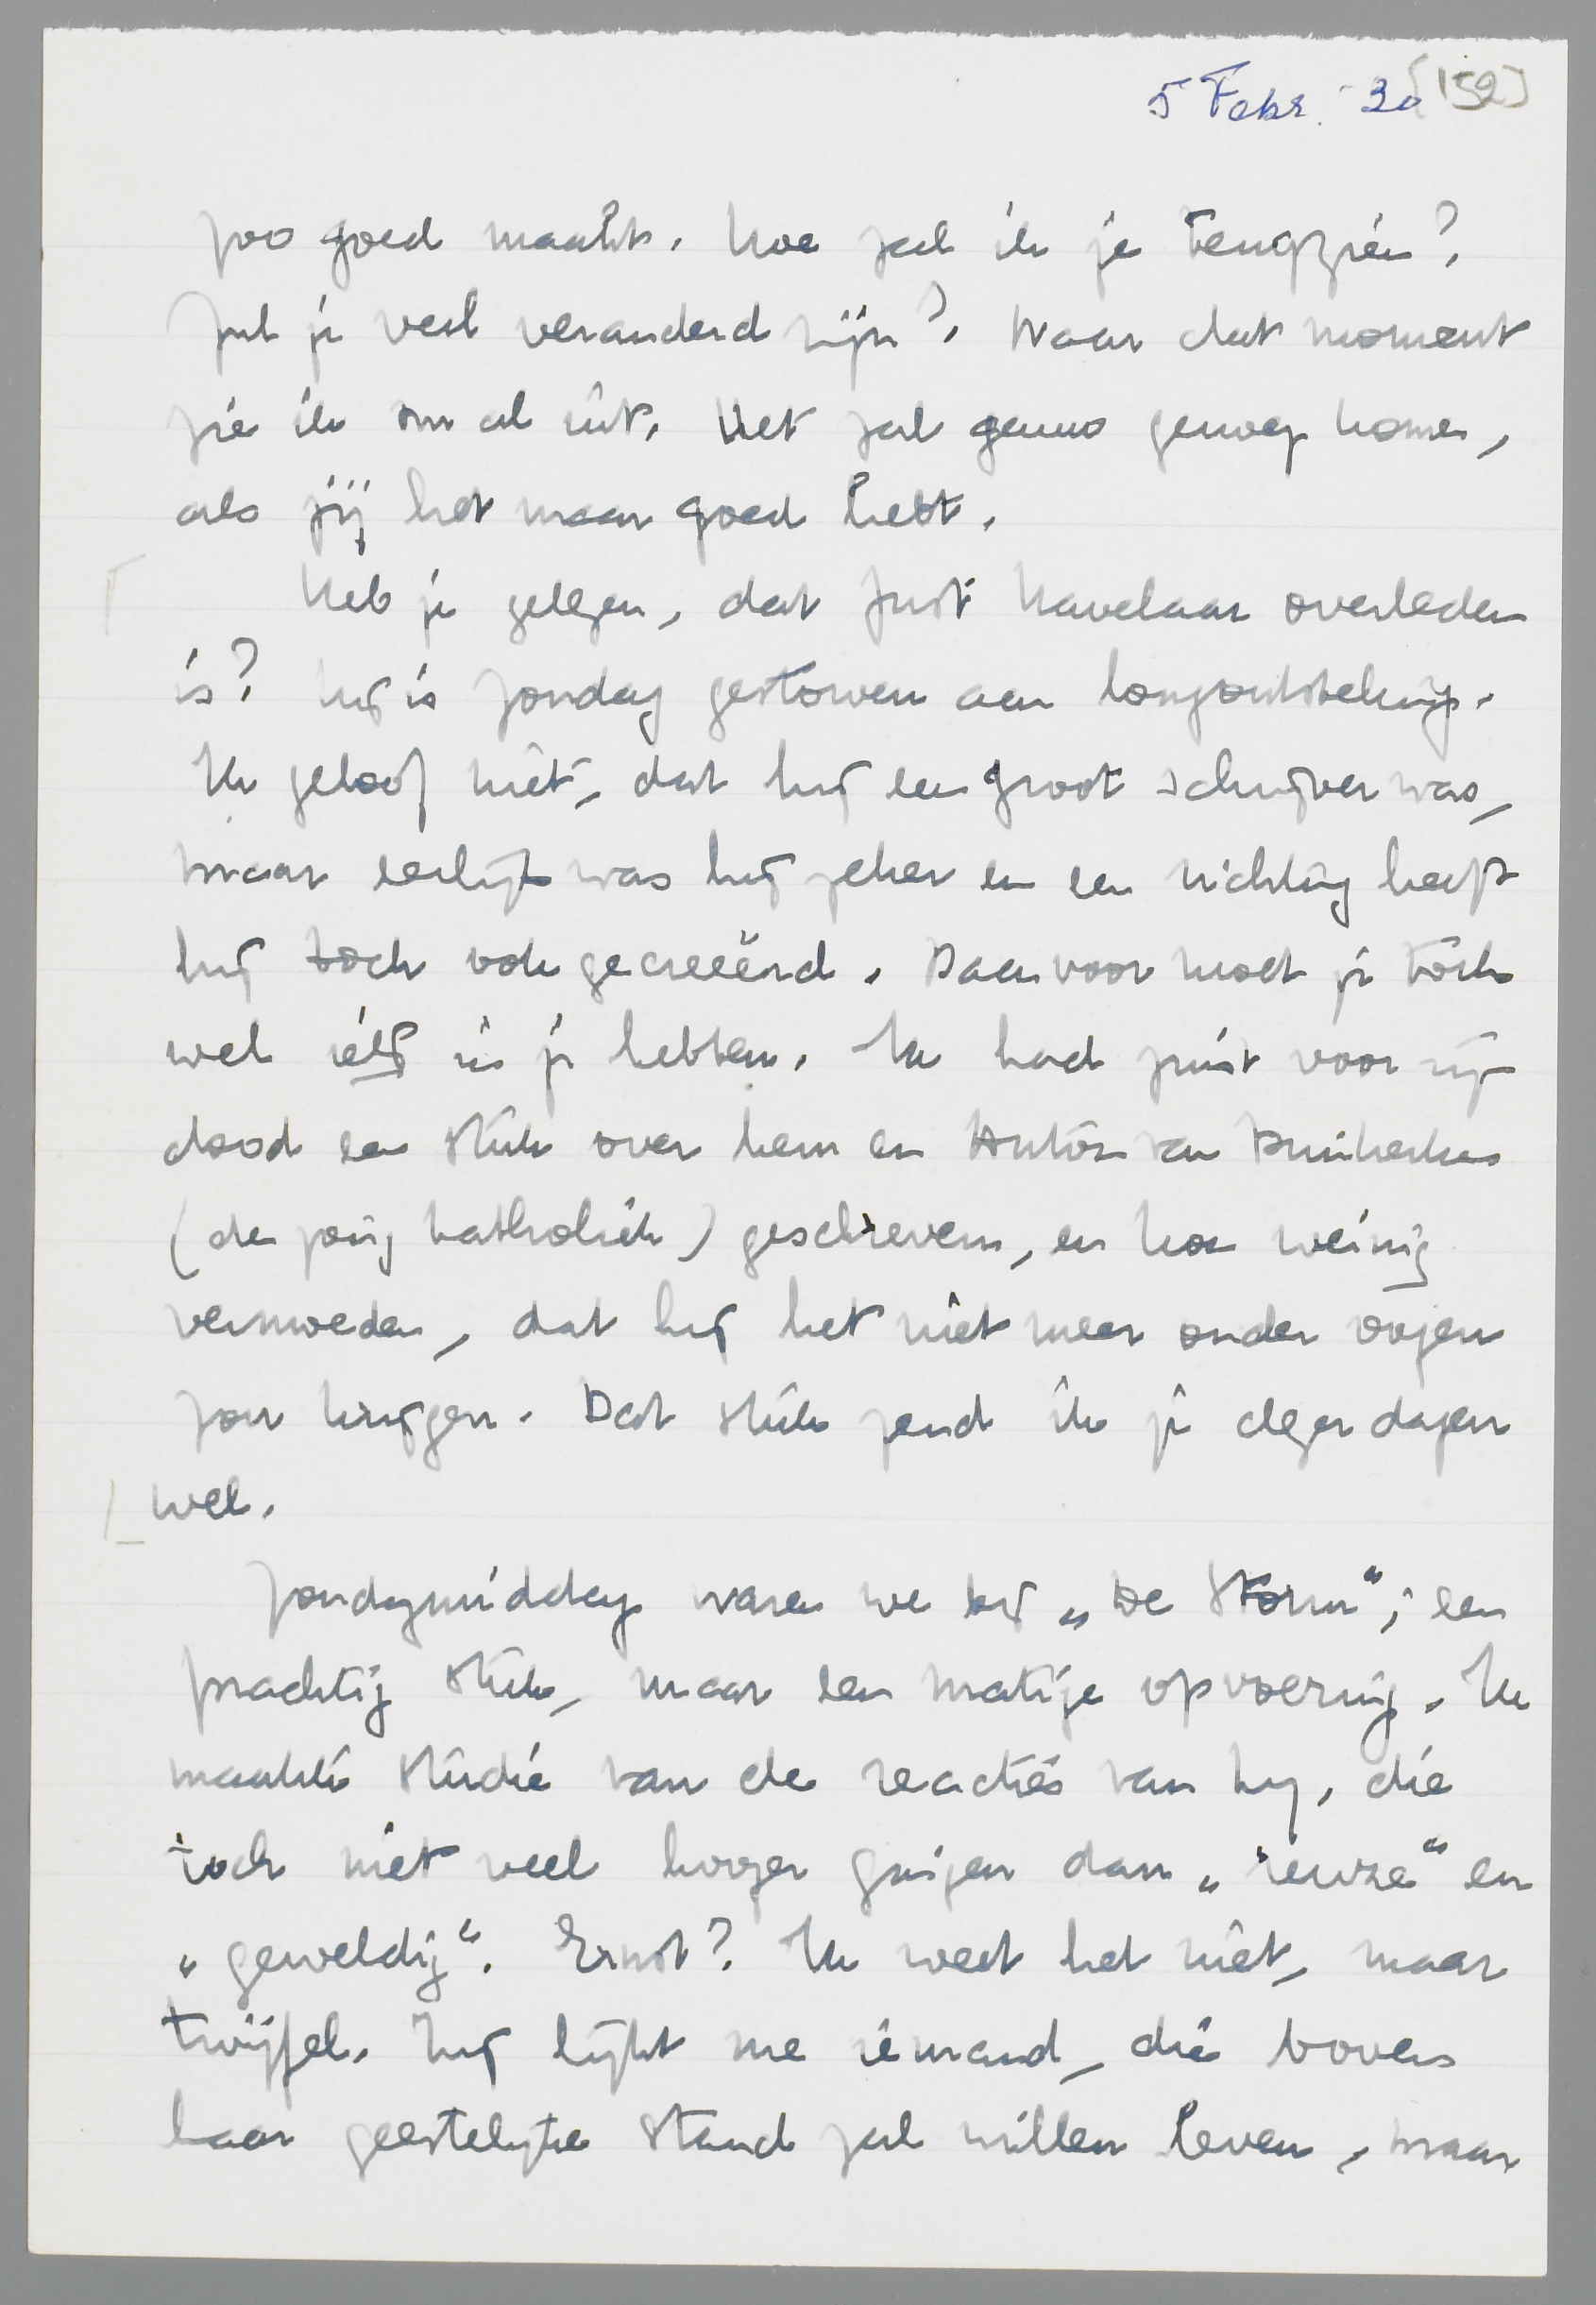 5 Febr. '30 [152]
zoo goed maakt. Hoe zal ik je terugzien?
Zul je veel veranderd zijn? Naar dat moment
zie ik nu al uit. Het zal gauw genoeg komen,
als jij het maar goed hebt.
Heb je gelezen, dat Just Havelaar overleden
is? Hij is Zondag gestorven aan longontsteking.
Ik geloof niet, dat hij een groot schrijver was,
maar eerlijk was hij zeker en een richting heeft
hij toch ook gecreëerd. Daarvoor moet je toch
wel iets in je hebben. Ik had juist voor zijn
dood een stuk over hem en Anton van Duinkerken
(de jong katholiek) geschreven, en kon weinig
vermoeden, dat hij het niet meer onder oogen
zou krijgen. Dat stuk zend ik je dezer dagen
wel.
Zondagmiddag waren we bij „De Storm", een
prachtig stuk, maar een matige opvoering. Ik
maakte studie van de reacties van
toch niet veel hooger gingen dan „reuze" en
„geweldig". Ernst? Ik weet het niet, maar
twijfel. Hij lijkt me iemand, die boven
haar geestelijke stand zal willen leven, maar